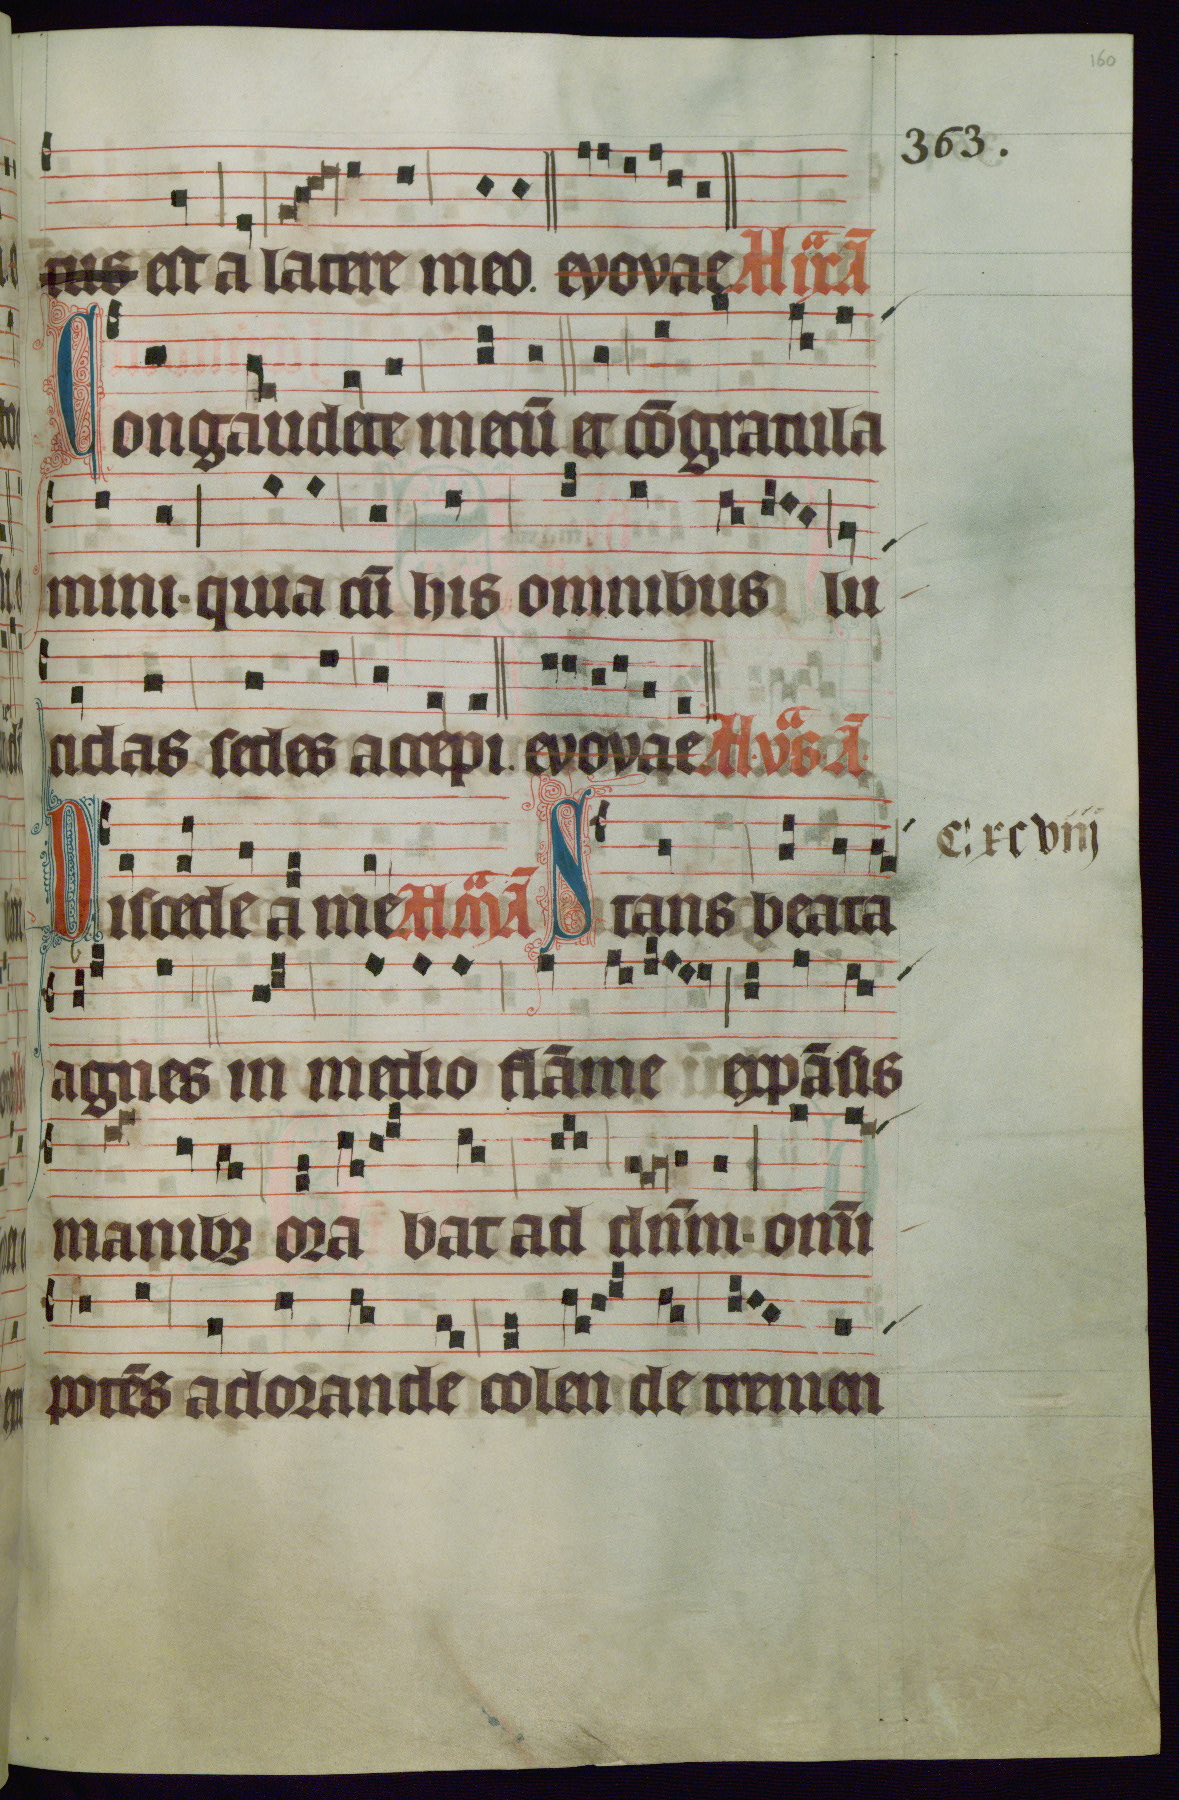 160
363.
tus est a latere meo. evovae Ad ixa A
Congaudete mecū et cōgratula
mini. quia cū his omnibus lu
cidas sedes accepi. evovae Ad vs A
Discede a me Stans beata
C. xcviij
agnes in medio flāme expāsis
manibꝫ orabat ad dn̄m. omī
potēs adorande colende tremen